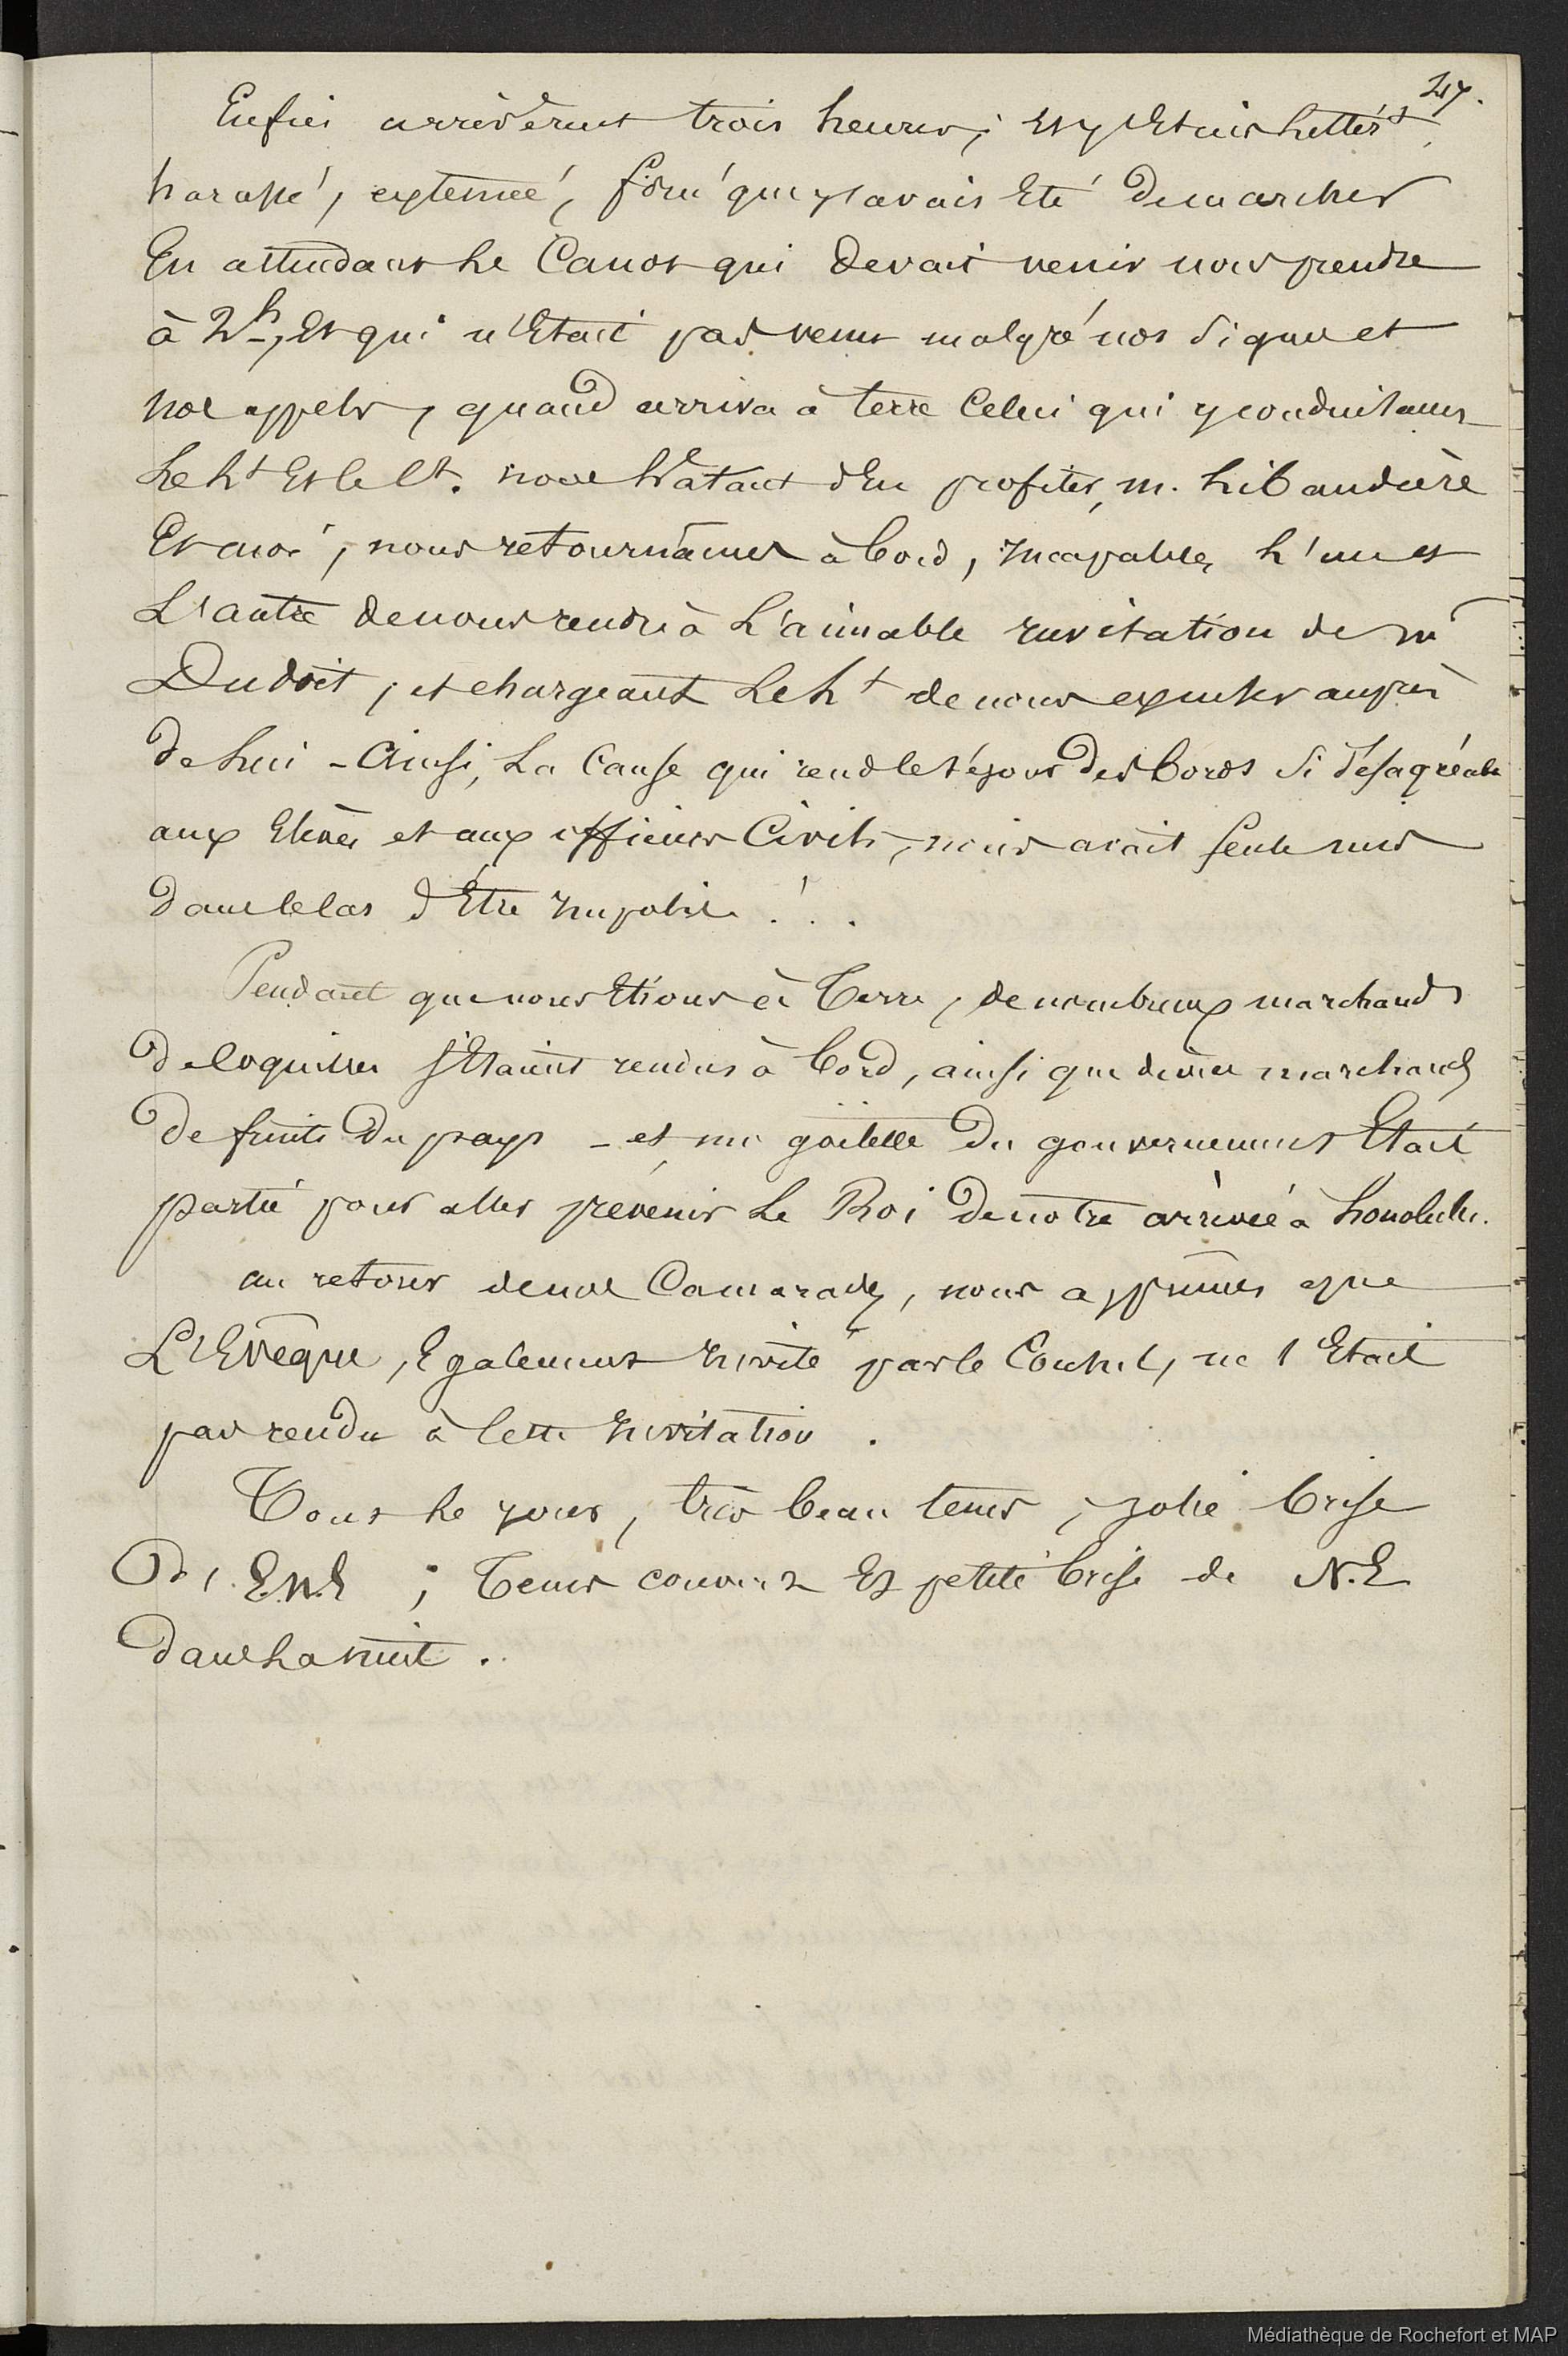 247.
Enfin arrivèrent trois heures; et j'étais littér.t
harassé, exténué, forcé que j'avais été de marcher
En attendant le Canot qui devait venir nous prendre
à 2h, et qui n'était pas venu malgré nos signes et
nos appels, quand arriva à terre celui qui y conduisait
Le Lt et le Ct. nous hâtant d'en profiter, m. Libaudière
Et moi, nous retournâmes à bord, incapables, l'un et
L'autre de nous rendre à l'aimable invitation de mr
Dudoit, et chargeant le Lt de nous excuser auprès
de lui - Ainsi, la Cause qui rend le séjour des bords si désagréable
aux Elèves et aux officiers Civils, nous avait seule mis
dans le cas d'Etre impolis !..
Pendant que nous étions à Terre, de nombreux marchands
de Coquilles s'étaient rendus à bord, ainsi que divers marchands
De fruits du pays - et une goëlette du gouvernement Etait
partie pour aller prévenir le Roi de notre arrivée à honolulu.
au retour de nos Camarades, nous apprîmes que
L'Evêque, Egalement invité par le Consul, ne s'Etait
pas rendu à cette invitation.
Tout le jour, très beau tems, jolie brise
D'. E.N.E ; Tems couvert Et petite brise de N.E
dans la nuit.
Médiathèque de Rochefort et MAP